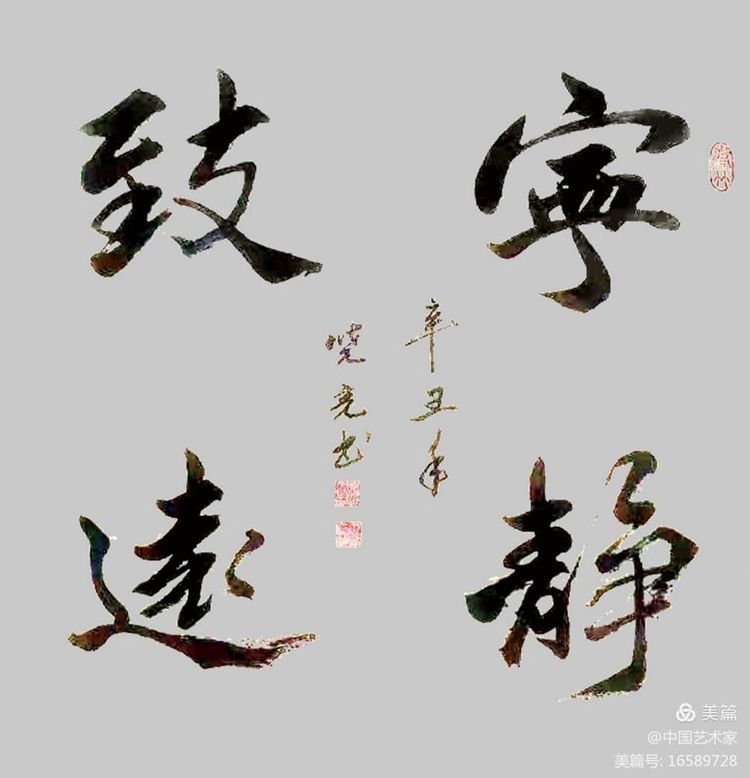 寧静
致遠
辛丑年
晓亮书
美篇
@中国艺术家
美篇号: 16589728